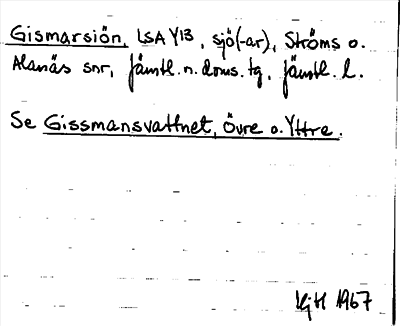 Gismarsiön, LSA Y13, sjö(-ar), Ströms o.
Alanäs snr, Jämtl. n. doms. tg, Jämtl. l.
Se Gissmansvattnet, Övre o. Yttre.
HjH 1967